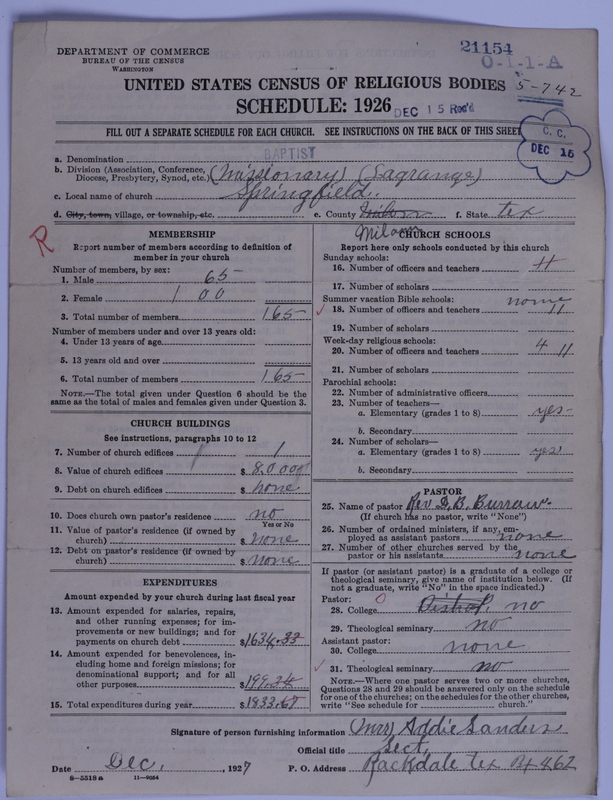 DEPARTMENT OF COMMERCE
BUREAU OF THE CENSUS
WASHINGTON
21154
O-1-1-A
UNITED STATES CENSUS OF RELIGIOUS BODIES
5-742
SCHEDULE: 1926
DEC 15 Rec'd
FILL OUT A SEPARATE SCHEDULE FOR EACH CHURCH. SEE INSTRUCTIONS ON THE BACK OF THIS SHEET
C. C.
DEC 16
a. Denomination BAPTIST
b. Division (Association, Conference, Diocese, Presbytery, Synod, etc.) (Missionary) (Lagrange)
c. Local name of church Springfield
d. City, town, village, or township, etc. e. County Milam f. State Tex
R
MEMBERSHIP
Report number of members according to definition of
member in your church
Number of members, by sex:
1. Male 65
2. Female 100
3. Total number of members 165
Number of members under and over 13 years old:
4. Under 13 years of age
5. 13 years old and over
6. Total number of members 165
NOTE.—The total given under Question 6 should be
the same as the total of males and females given under Question 3.
CHURCH BUILDINGS
See instructions, paragraphs 10 to 12
7. Number of church edifices 1
8. Value of church edifices $
9. Debt on church edifices $ none
10. Does church own pastor's residence no
Yes or No
11. Value of pastor's residence (if owned by
church) $ none
12. Debt on pastor's residence (if owned by
church) $ none
EXPENDITURES
Amount expended by your church during last fiscal year
13. Amount expended for salaries, repairs,
and other running expenses; for im-
provements or new buildings; and for
payments on church debt $1634.33
14. Amount expended for benevolences, in-
cluding home and foreign missions; for
denominational support; and for all
other purposes $199.24
15. Total expenditures during year $1833.67
CHURCH SCHOOLS
Report here only schools conducted by this church
Sunday schools:
16. Number of officers and teachers
17. Number of scholars
Summer vacation Bible schools: none
18. Number of officers and teachers
19. Number of scholars
Week-day religious schools: 4
20. Number of officers and teachers
21. Number of scholars
Parochial schools:
22. Number of administrative officers
23. Number of teachers—
a. Elementary (grades 1 to 8) yes
b. Secondary
24. Number of scholars—
a. Elementary (grades 1 to 8) yes
b. Secondary
PASTOR
25. Name of pastor Rev D. B. Burrow
(If church has no pastor, write "None")
26. Number of ordained ministers, if any, em-
ployed as assistant pastors none
27. Number of other churches served by the
pastor or his assistants none
If pastor (or assistant pastor) is a graduate of a college or
theological seminary, give name of institution below. (If
not a graduate, write "No" in the space indicated.)
Pastor:
28. College Bishop no
29. Theological seminary no
Assistant pastor:
30. College none
31. Theological seminary no
NOTE.—Where one pastor serves two or more churches,
Questions 28 and 29 should be answered only on the schedule
for one of the churches; on the schedules for the other churches,
write "See schedule for church."
Signature of person furnishing information Mrs Addie Sanders
Official title Sect.
Date Dec., 1927 P. O. Address Rockdale Tex 462
8-5518a 11-9064